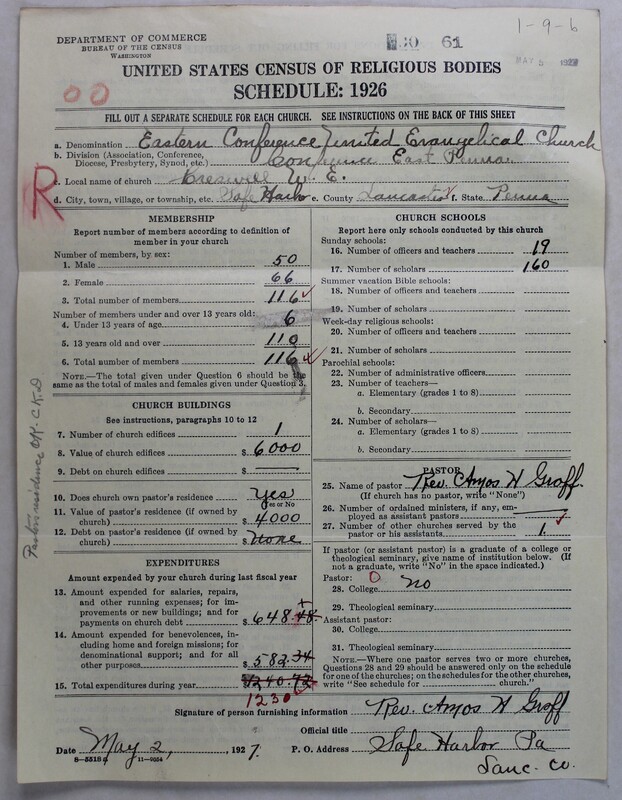 1-9-6
DEPARTMENT OF COMMERCE
BUREAU OF THE CENSUS
WASHINGTON
30 61
MAY
UNITED STATES CENSUS OF RELIGIOUS BODIES
SCHEDULE: 1926
FILL OUT A SEPARATE SCHEDULE FOR EACH CHURCH. SEE INSTRUCTIONS ON THE BACK OF THIS SHEET
a. Denomination Eastern Conference United Evangelical Church
b. Division (Association, Conference, Diocese, Presbytery, Synod, etc.) Conference East Penna.
c. Local name of church Creswell U. E.
d. City, town, village, or township, etc. Safe Harbor e. County Lancaster f. State Penna
R
MEMBERSHIP
Report number of members according to definition of
member in your church
Number of members, by sex:
1. Male 50
2. Female 66
3. Total number of members 116
Number of members under and over 13 years old:
4. Under 13 years of age 6
5. 13 years old and over 110
6. Total number of members 116
NOTE.—The total given under Question 6 should be the
same as the total of males and females given under Question 3.
CHURCH BUILDINGS
See instructions, paragraphs 10 to 12
7. Number of church edifices 1
8. Value of church edifices $ 6000
9. Debt on church edifices $
10. Does church own pastor's residence Yes
Yes or No
11. Value of pastor's residence (if owned by
church) $ 4000
12. Debt on pastor's residence (if owned by
church) $ None
Pastor's residence OK. CKD
EXPENDITURES
Amount expended by your church during last fiscal year
13. Amount expended for salaries, repairs,
and other running expenses; for im-
provements or new buildings; and for
payments on church debt $ 648.48
14. Amount expended for benevolences,
including home and foreign missions; for
denominational support; and for all
other purposes $ 582.34
15. Total expenditures during year
1230
CHURCH SCHOOLS
Report here only schools conducted by this church
Sunday schools:
16. Number of officers and teachers 19
17. Number of scholars 160
Summer vacation Bible schools:
18. Number of officers and teachers
19. Number of scholars
Week-day religious schools:
20. Number of officers and teachers
21. Number of scholars
Parochial schools:
22. Number of administrative officers
23. Number of teachers—
a. Elementary (grades 1 to 8)
b. Secondary
24. Number of scholars—
a. Elementary (grades 1 to 8)
b. Secondary
PASTOR
25. Name of pastor Rev. Amos H Groff.
(If church has no pastor, write "None")
26. Number of ordained ministers, if any, em-
ployed as assistant pastors
27. Number of other churches served by the
pastor or his assistants 1.
If pastor (or assistant pastor) is a graduate of a college or
theological seminary, give name of institution below. (If
not a graduate, write "No" in the space indicated.)
Pastor:
28. College no
29. Theological seminary
Assistant pastor:
30. College
31. Theological seminary
NOTE.—Where one pastor serves two or more churches,
Questions 28 and 29 should be answered only on the schedule
for one of the churches; on the schedules for the other churches,
write "See schedule for church."
Signature of person furnishing information Rev. Amos H Groff
Official title
Date May 2, 1927. P. O. Address Safe Harbor Pa
Lanc. Co.